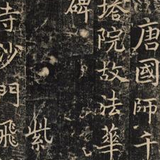 唐國師千
塔院故法華
碑
紫
寺沙門飛